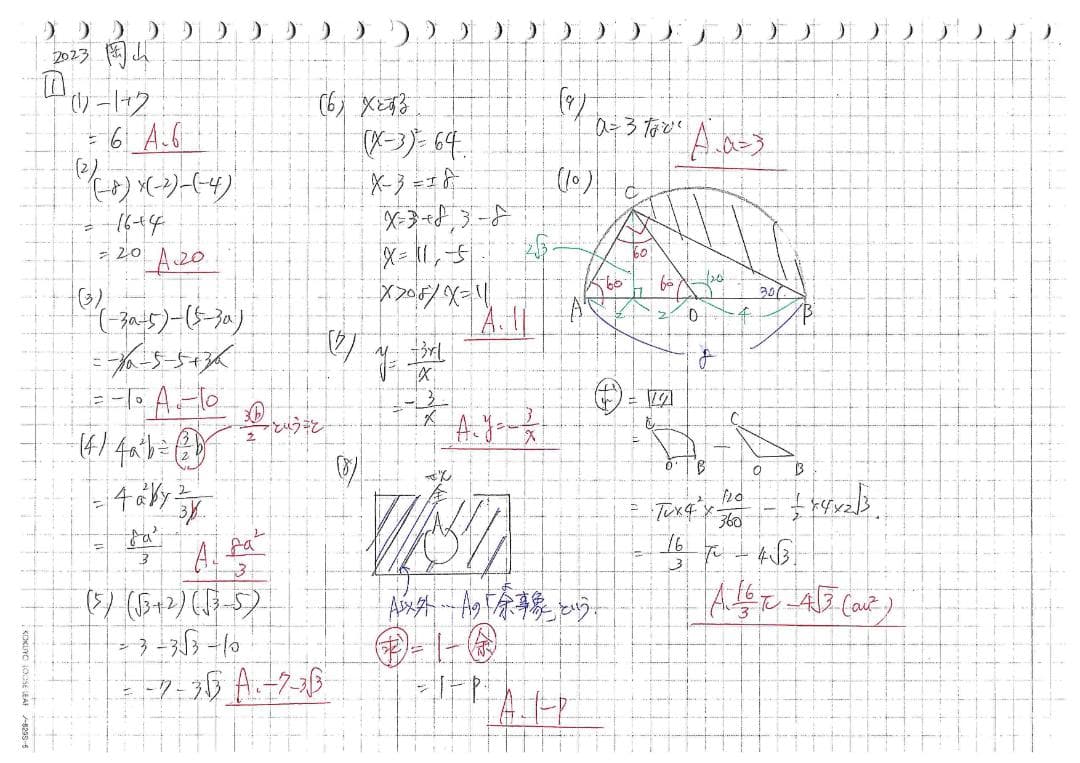 2023 岡山
1
(1) -1+7
= 6 A.6
(2) (-8)×(-2)-(-4)
= 16+4
= 20 A.20
(3) (-3a-5)-(5-3a)
= -3a-5-5+3a
= -10 A.-10
(4) 4a²b÷3/2b 3b/2ということ
= 4a²b×2/3b
= 8a²/3 A.8a²/3
(5) (√3+2)(√3-5)
= 3-3√3-10
= -7-3√3 A.-7-3√3
(6) xとする
(x-3)²=64
x-3=±8
x=3+8, 3-8
x=11, -5
x>0より x=11
A.11
(7) y=-3×1/x
=-3/x
A.y=-3/x
(8)
全
A
A以外…Aの「余事象」という.
求=1-余
=1-p
A.1-p
(9) a=3 など
A.a=3
(10)
C
2√3
60
60 60 120 30
A 2 2 O 4 B
8
求=
C C
= -
O B O B
= π×4²×120/360 - 1/2×4×2√3
= 16/3π-4√3
A.16/3π-4√3(cm²)
KOKUYO LOOSE-LEAF